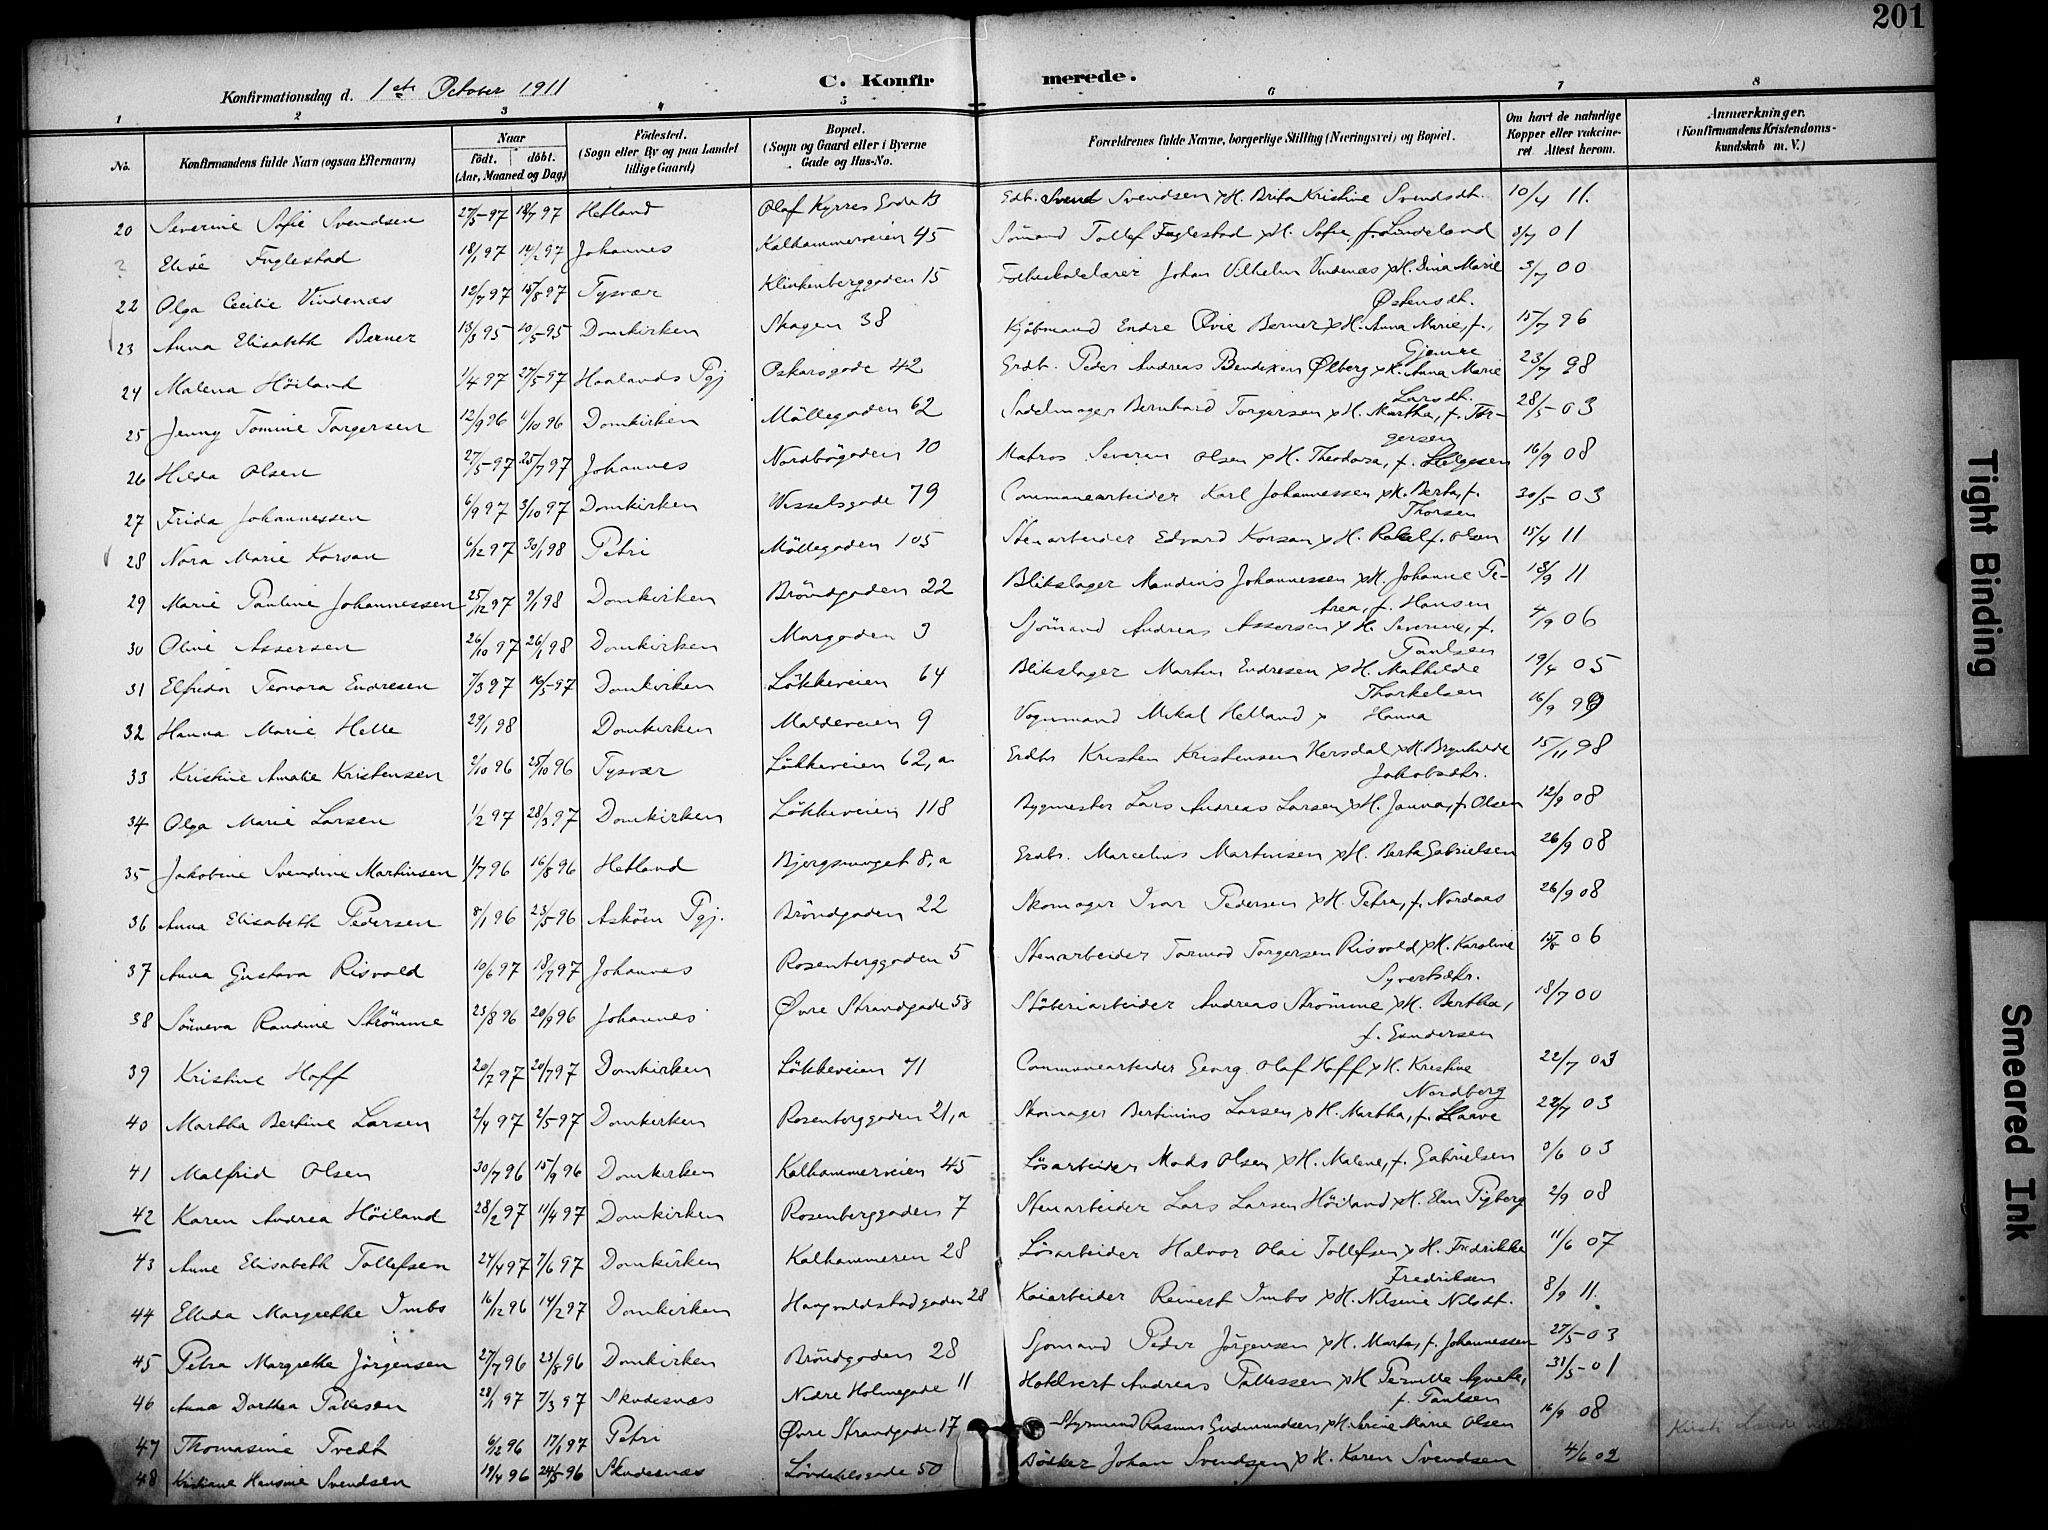 201
Konfirmationsdag d. 1ste October 1911 C. Konfirmerede.
1 2 3 4 5 6 7 8
No. Konfirmandens fulde Navn (ogsaa Efternavn) Naar født. døbt. (Aar, Maaned og Dag) Fødested. (Sogn eller By og paa Landet tillige Gaard) Bopæl. (Sogn og Gaard eller i Byerne Gade og Hus-No. Forældrenes fulde Navne, borgerlige Stilling (Næringsvei) og Bopæl. Om havt de naturlige Kopper eller vakcineret. Attest herom. Anmærkninger. (Konfirmandens Kristendomskundskab m. V.)
20 Severine Sofie Svendsen 27/5-97 18/7 97 Hetland Olaf Kyrres Gade B Gdb. Svend Svendsen x H. Brita Kristine Svendsdt. 10/4 11.
Elise Fuglestad 18/1 97 14/2 97 Johannes Kalhammerveien 45 Sømand Tollef Fuglestad x H. Sofie, f. Lindeland 3/7 01
22 Olga Cecilie Vindenæs 12/7 97 15/8 97 Tysvær Klinkenberggaden 15 Folkeskolelærer Johan Vilhelm Vindenæs x H. Dina Marie Østensdt. 3/7 00
23 Anna Elisabeth Berner 13/3 95 10/5-95 Domkirken Skagen 38 Kjøbmand Endre Øvie Berner x H. Anna Marie, f. Gjemre 15/7 96
24 Malena Høiland 1/4 97 27/5-97 Haalands Pgj Oskarsgade 42 Grdb. Peder Andreas Bendixen Ølberg x H. Anna Marie Larsdt. 23/7 98
25 Jenny Tomine Torgersen 12/9 96 11/10 96 Domkirken Møllegaden 62 Sadelmager Bernhard Torgersen x H. Martha, f. Torgersen 28/5-03
26 Hilda Olsen 27/5-97 25/7 97 Johannes Nordbøgaden 10 Matros Severin Olsen x H. Theodora, f. Helgesen 16/9 08
27 Frida Johannessen 6/9 97 3/10 97 Domkirken Wesselsgade 79 Communearbeider Karl Johannessen x H. Berta, f. Thorsen 30/5-03
28 Nora Marie Korsan 6/12 97 30/1 98 Petri Møllegaden 105 Stenarbeider Edvard Korsan x H. Rakel f. Olsen 15/4 11
29 Marie Pauline Johannessen 25/12 97 9/1 98 Domkirken Brøndgaden 22 Blikslager Mandius Johannessen x H. Johanne Pe- trea, f. Hansen 18/9 11
30 Oline Assersen 26/10 97 26/1 98 Domkirken Murgaden 3 Sjømand Andreas Assersen x H. Severine, f. Paulsen 4/9 06
31 Elfrida Teonora Endresen 7/3 97 16/5-97 Domkirken Løkkeveien 64 Blikslager Martin Endresen x H. Mathilde Thorkelsen 19/4 05
32 Hanna Marie Helle 29/1 98 Domkirken Maldeveien 9 Vognmand Mikal Helland x Hanna 16/9 99
33 Kristine Amalie Kristensen 2/10 96 25/10 96 Tysvær Løkkeveien 62,a Grdbr Kristen Kristensen Hersdal x H. Brynhilde Jakobsdtr. 15/11 98
34 Olga Marie Larsen 1/2 97 28/3 97 Domkirken Løkkeveien 118 Bygmester Lars Andreas Larsen x H. Janna, f. Olsen 12/9 08
35 Jakobine Svendine Martinsen 1/7 96 16/8 96 Hetland Bjergsmuget 8,a Grdbr. Marcelius Martinsen x H. Berta Gabrielsen 26/9 08
36 Anna Elisabeth Pedersen 8/1 96 23/5-96 Askøen Pgj. Brøndgaden 22 Skomager Ivar Pedersen x H. Petra, f. Nordaas 26/9 08
37 Anna Gustava Risvold 10/6 97 18/7 97 Johannes Rosenberggaden 5 Stenarbeider Tormod Torgersen Risvold x H. Karoline Syvertsdtr. 06
38 Sønneva Randine Strømme 23/8 96 20/9 96 Johannes Øvre Strandgade 58 Støberiarbeider Andreas Strømme x H. Bertha, f. Gundersen 18/7 00
39 Kristine Hoff 20/2 97 20/7 97 Domkirken Løkkeveien 71 Communearbeider Georg Olaf Hoff x H. Kristine Nordberg 22/7 03
40 Martha Bertine Larsen 2/4 97 2/5-97 Domkirken Rosenberggaden 21,a Skomager Bertinius Larsen x H. Martha, f. Haave 22/7 03
41 Malfrid Olsen 30/7 96 15/9 96 Domkirken Kalhammerveien 45 Løsarbeider Mads Olsen x H. Malene, f. Gabrielsen 3/6 03
42 Karen Andrea Høiland 28/2 97 11/4 97 Domkirken Rosenberggaden 7 Stenarbeider Lars Larsen Høiland x H. Elen Tigberg 2/9 08
43 Anne Elisabeth Tollefsen 24/4 97 7/6 97 Domkirken Kalhammeren 28 Løsarbeider Halvor Olai Tollefsen x H. Fredrikke Fredriksen 11/6 07
44 Elleda Margrethe Imbs 16/12 96 14/2 97 Domkirken Haugvaldstadgaden 28 Kaiarbeider Reinert Imbs x H. Nilsine Nilsdt. 8/9 11.
45 Petra Margrethe Jørgensen 27/7 96 23/8 96 Domkirken Brøndgaden 28 Sjømand Peder Jørgensen x H. Marta, f. Johannessen 27/5-03
46 Anna Dorthea Pallesen 28/1 97 7/3 97 Skudesnæs Nedre Holmegade 11 Hotelvert Andreas Pallessen x H Pernille Agnethe, f. Paulsen 31/5-01
47 Thomasine Tvedt 6/12 96 17/1 97 Petri Øvre Strandgade 17 Styrmand Rasmus Gudmundsen x H. Serine Marie Olsen 16/9 08
48 Kristiane Hansine Svendsen 19/4 96 24/5 96 Skudesnæs Løvdahlsgade 50 Bødker Johan Svendsen x H. Karen Svendsen 4/6 02
Tight Binding
Smeared Ink